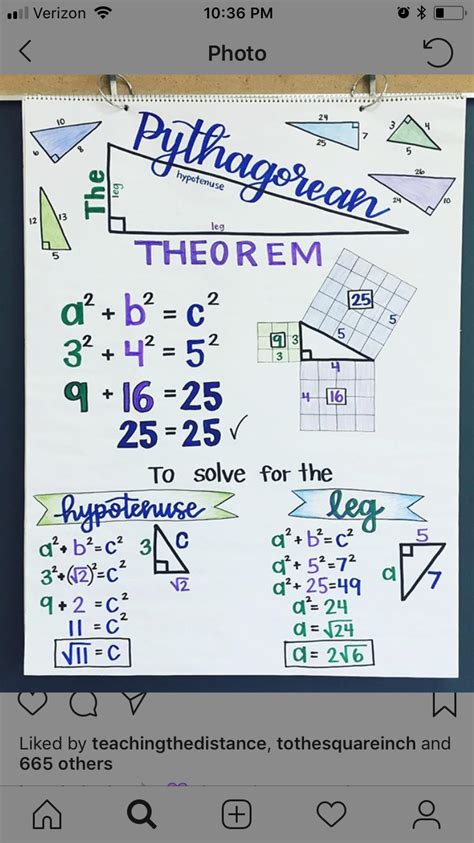 Verizon 10:36 PM
Photo
The Pythagorean
THEOREM
leg
hypotenuse
leg
10
6 8
24
7
25
3 4
5
26
24 10
12 13
5
a² + b² = c²
3² + 4² = 5²
9 + 16 = 25
25 = 25 ✓
25
5
5
9 3
3
4
4 16
To solve for the
hypotenuse
a² + b² = c²
3² + (√2)² = c²
9 + 2 = c²
11 = c²
√11 = c
3 c
√2
leg
a² + b² = c²
a² + 5² = 7²
a² + 25 = 49
a² = 24
a = √24
a = 2√6
5
a 7
Liked by teachingthedistance, tothesquareinch and
665 others